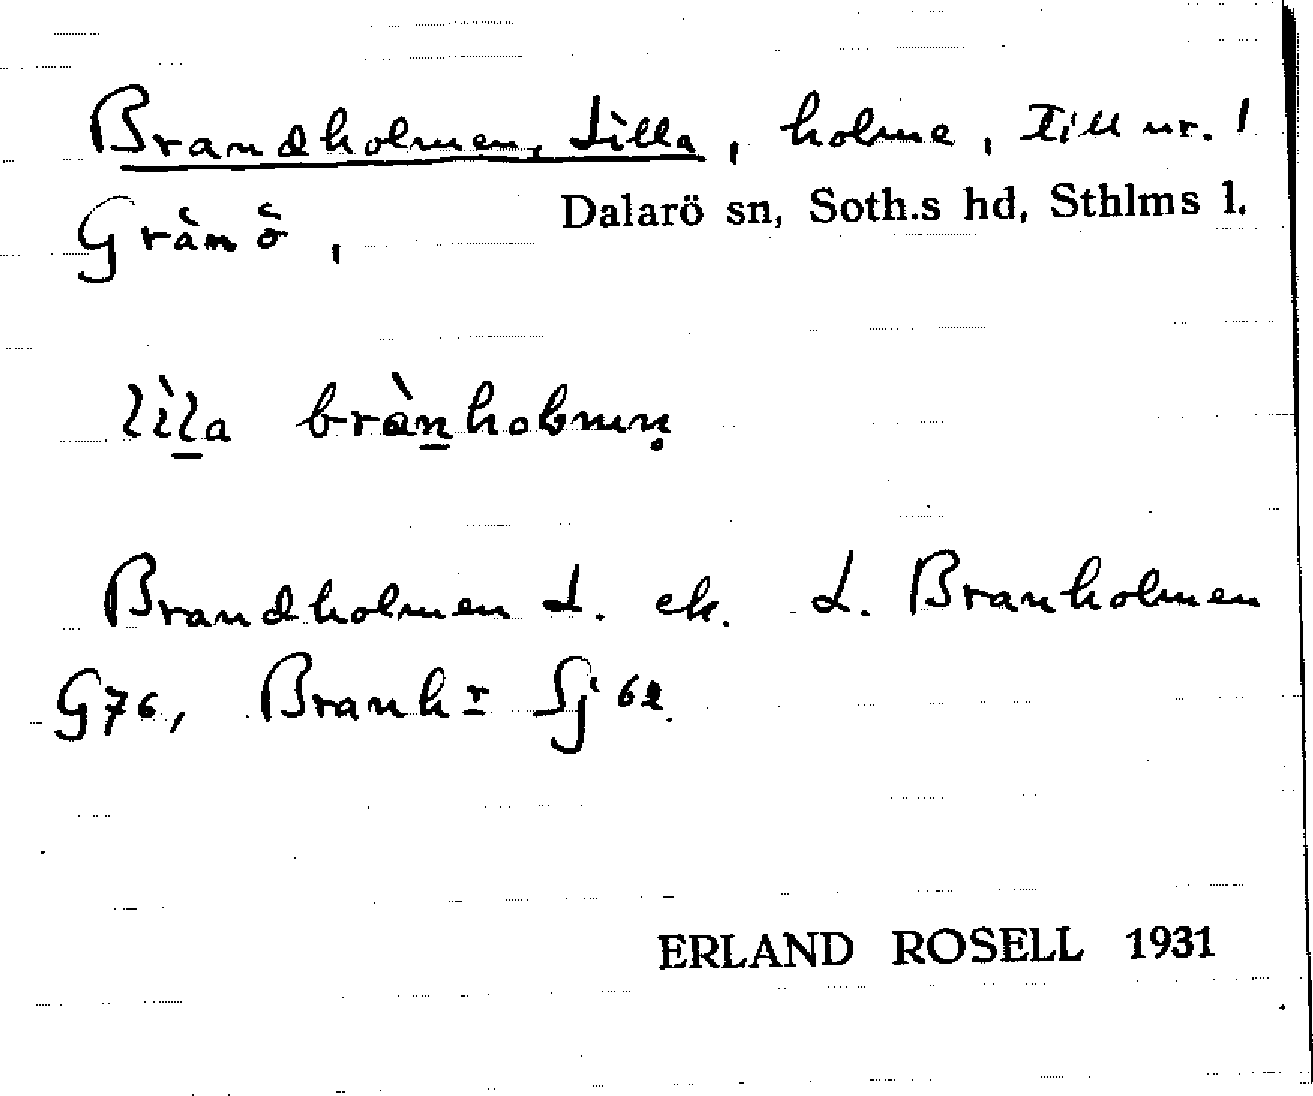 Brandholmen, Lilla, holme, till nr. 1
Grànö̀, Dalarö sn, Soth.s hd, Sthlms l.
lìl̲a bràn̲holmņ
Brandholmen L. ek. L. Branholmen
G76, Branhr Sj 62.
ERLAND ROSELL 1931